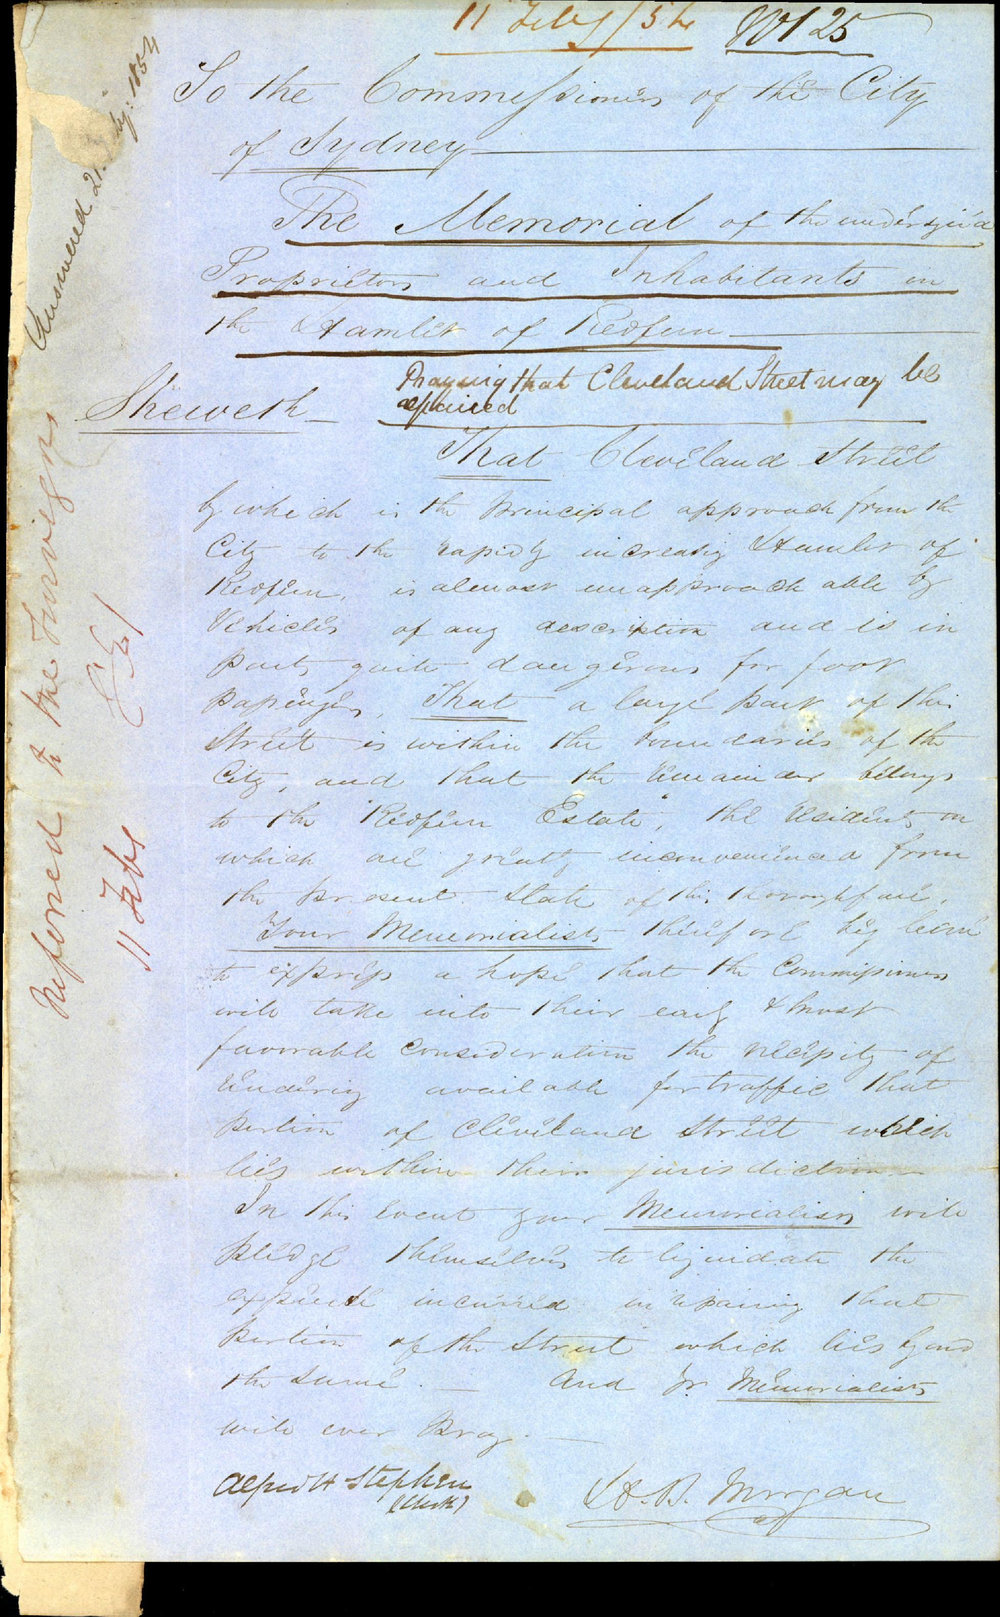 11 Feby /54 No 125
To the Commissioners of the City
of Sydney
The Memorial of the undersign'd
Proprietors and Inhabitants in
the Hamlet of Redfern
Praying that Cleveland Street may be
repaired
Sheweth
That Cleveland Street
by which is the principal approach from the
City to the rapidly increasing Hamlet of
Redfern, is almost unapproachable by
Vehicles of any description and is in
parts quite dangerous for foot
passengers, That a large part of this
Street is within the boundaries of the
City, and that the remainder belongs
to the "Redfern Estate", the residents on
which are greatly inconvenienced from
the present state of this thoroughfare.
Your Memorialists therefore beg leave
to express a hope that the Commissioners
will take into their early & most
favorable consideration the necessity of
rendering available for traffic that
portion of Cleveland Street which
lies within their jurisdiction
In this event your Memorialists will
pledge themselves to liquidate the
expense incurred in repairing that
portion of the Street which lies beyond
the same. And Yr Memorialists
will ever Pray.
Alfred H Stephen
(Clerk)
H. B. Morgan
Answered 21 Feby: 1854
Referred to the Surveyor
11 Feby